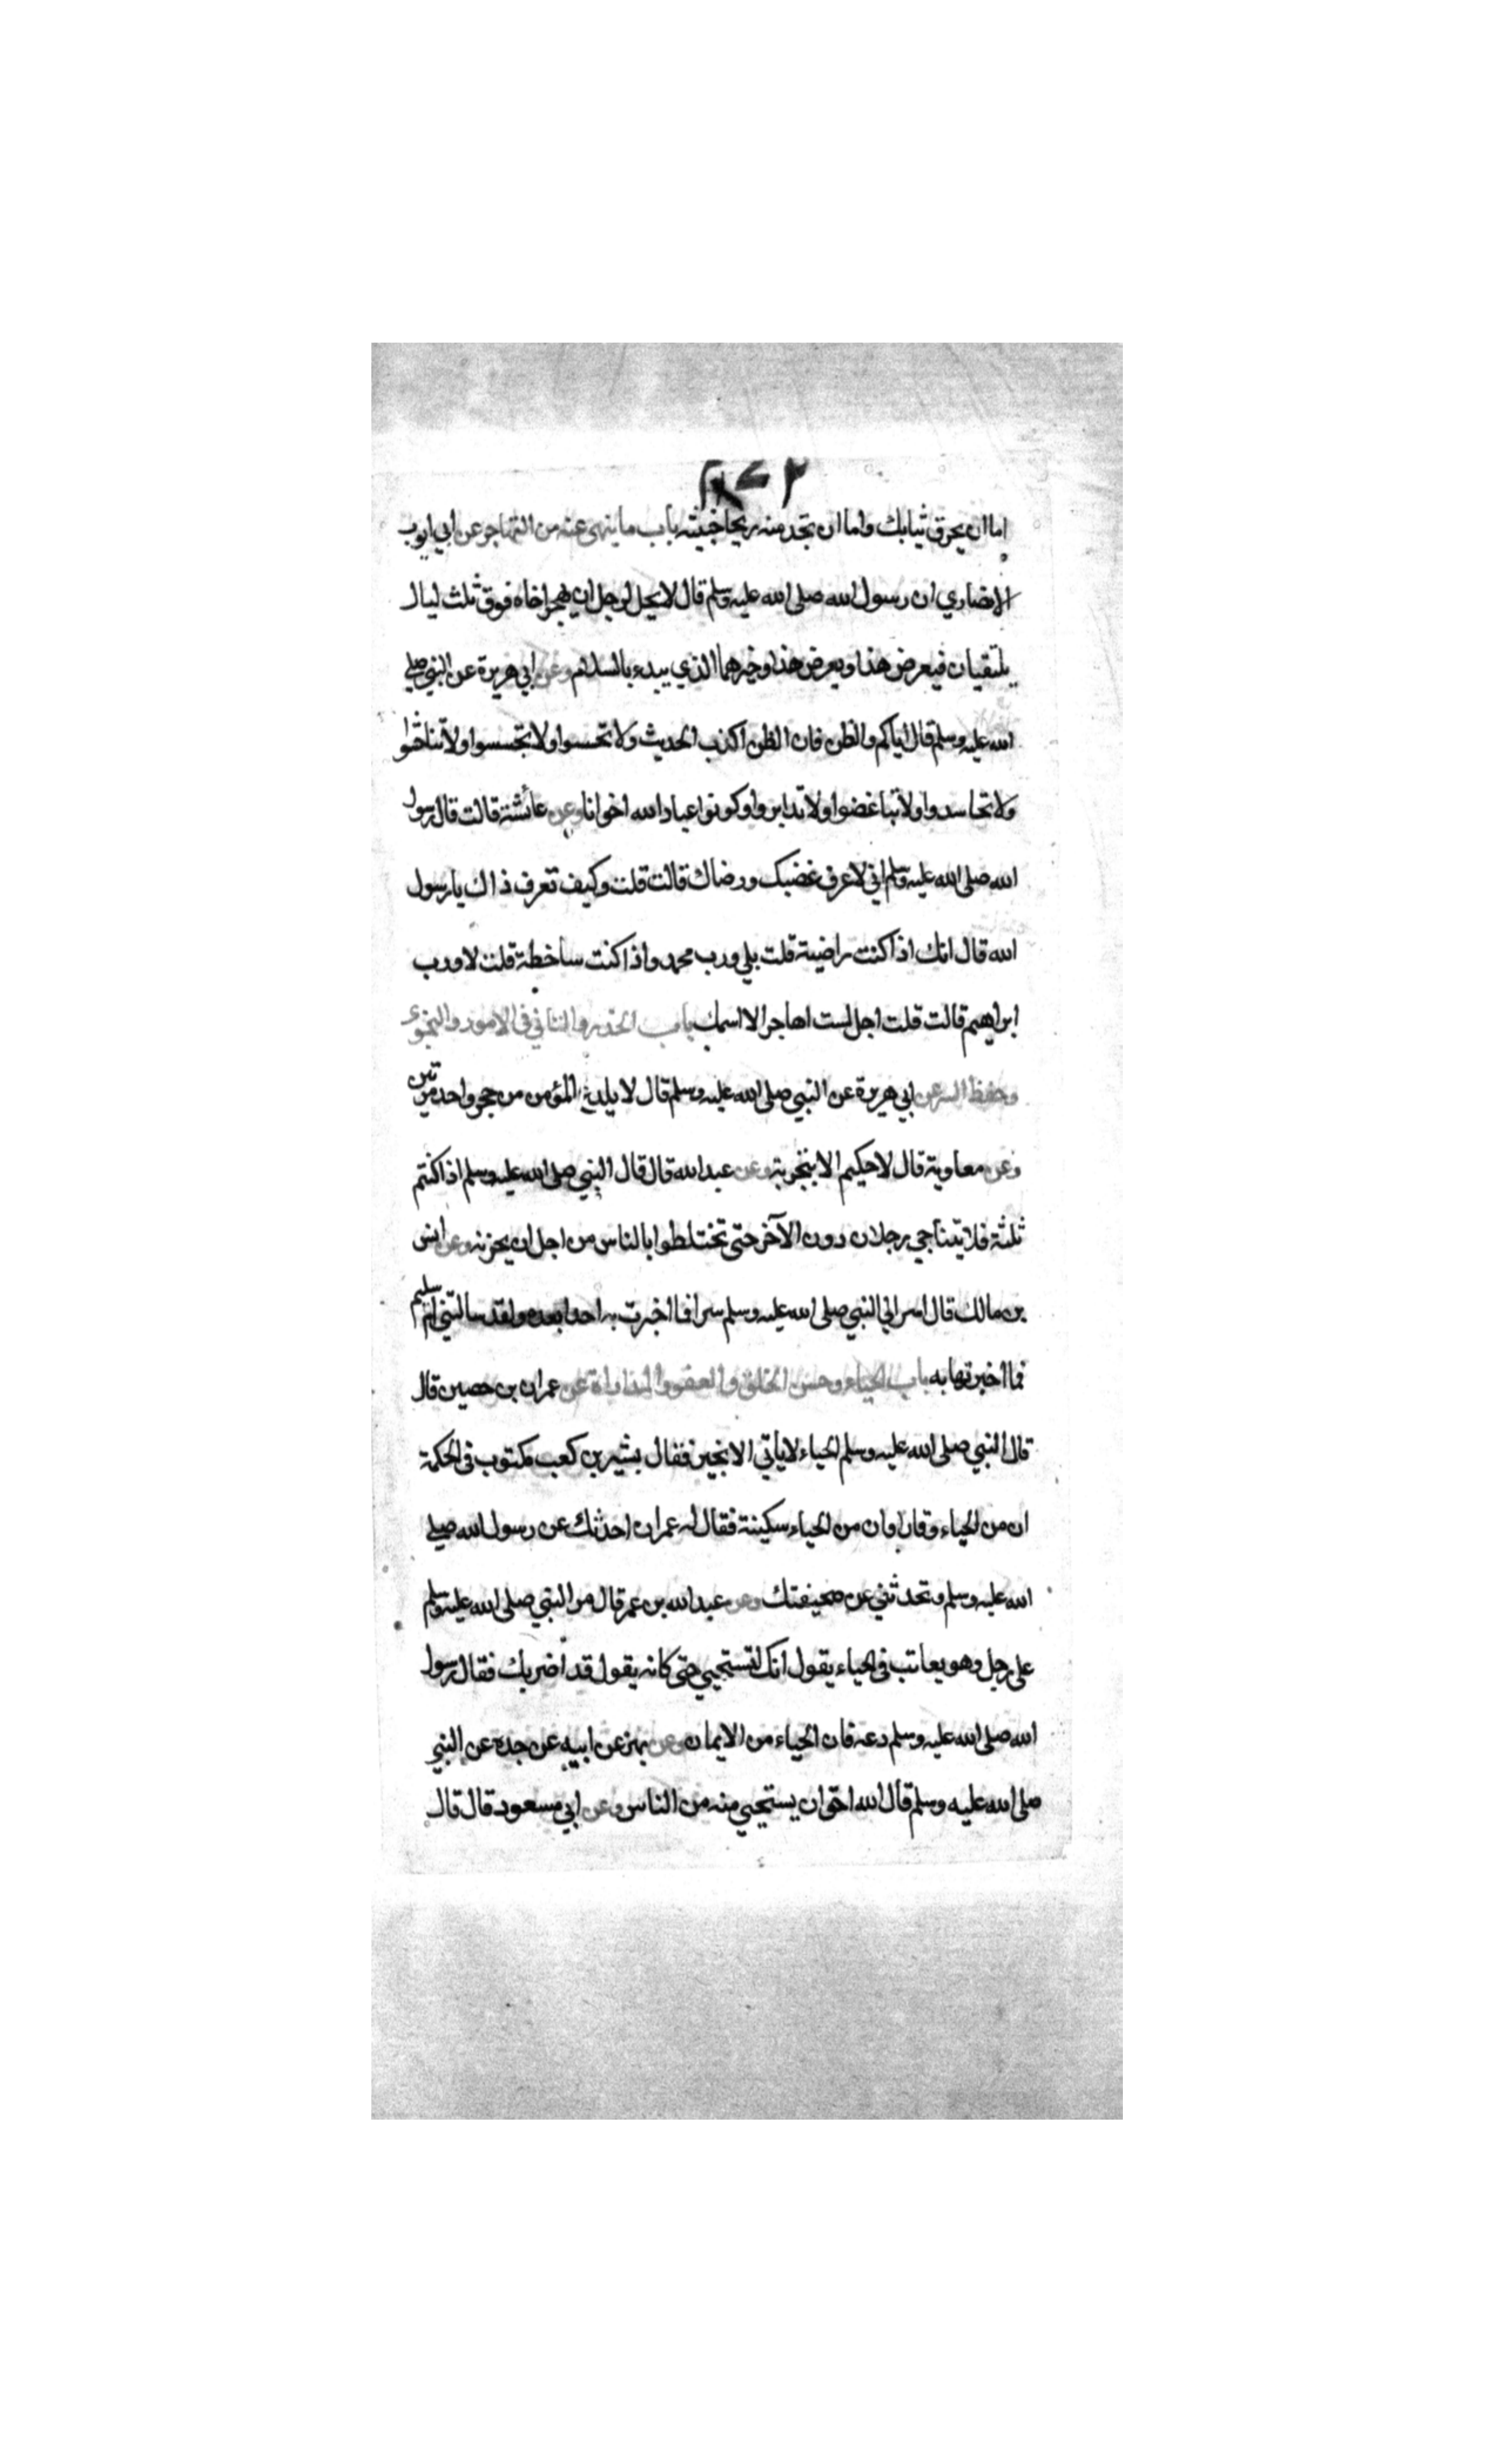 اما ان يحرق ثيابك واما ان تجد منه ريحا خبيثه باب ما ينهى عنه من التهاجر عن ابي ايوب
الانصاري ان رسول الله صلى الله عليه وسلم قال لا يحل لرجل ان يهجر اخاه فوق ثلث ليال
يلتقيان فيعرض هذا ويعرض هذا وخيرهما الذي يبدء بالسلام وعن ابي هريرة عن النبي صلى
الله عليه وسلم قال اياكم والظن فان الظن اكذب الحديث ولا تحسسوا ولا تجسسوا ولا تناجشوا
ولا تحاسدوا ولا تباغضوا ولا تدابروا وكونوا عباد الله اخوانا وعن عائشة قالت قال رسول
الله صلى الله عليه وسلم اني لاعرف غضبك ورضاك قالت قلت وكيف تعرف ذاك يا رسول
الله قال انك اذا كنت راضية قلت بلى ورب محمد واذا كنت ساخطة قلت لا ورب
ابراهيم قالت قلت اجل لست اهاجر الا اسمك باب الحذر والتاني في الامور والنجوى
وحفظ السر عن ابي هريرة عن النبي صلى الله عليه وسلم قال لا يلدغ المؤمن من جحر واحد مرتين
وعن معاوية قال لا حكيم الا بتجربة وعن عبد الله قال قال النبي صلى الله عليه وسلم اذا كنتم
ثلثة فلا يتناجي رجلان دون الآخر حتى تختلطوا بالناس من اجل ان يحزنه وعن انس
بن مالك قال اسر الي النبي صلى الله عليه وسلم سرا فما اخبرت به احدا بعده ولقد سالتني ام سليم
فما اخبرتها به باب الحياء وحسن الخلق والعفو والمداراة عن عمران بن حصين قال
قال النبي صلى الله عليه وسلم الحياء لا ياتي الا بخير فقال بشير بن كعب مكتوب في الحكمة
ان من الحياء وقارا وان من الحياء سكينة فقال له عمران احدثك عن رسول الله صلى
الله عليه وسلم وتحدثني عن صحيفتك وعن عبد الله بن عمر قال مر النبي صلى الله عليه وسلم
على رجل وهو يعاتب في الحياء يقول انك لتستحيي حتى كانه يقول قد اضر بك فقال رسول
الله صلى الله عليه وسلم دعه فان الحياء من الايمان وعن بهز عن ابيه عن جده عن النبي
صلى الله عليه وسلم قال الله احق ان يستحيي منه من الناس وعن ابي مسعود قال قال